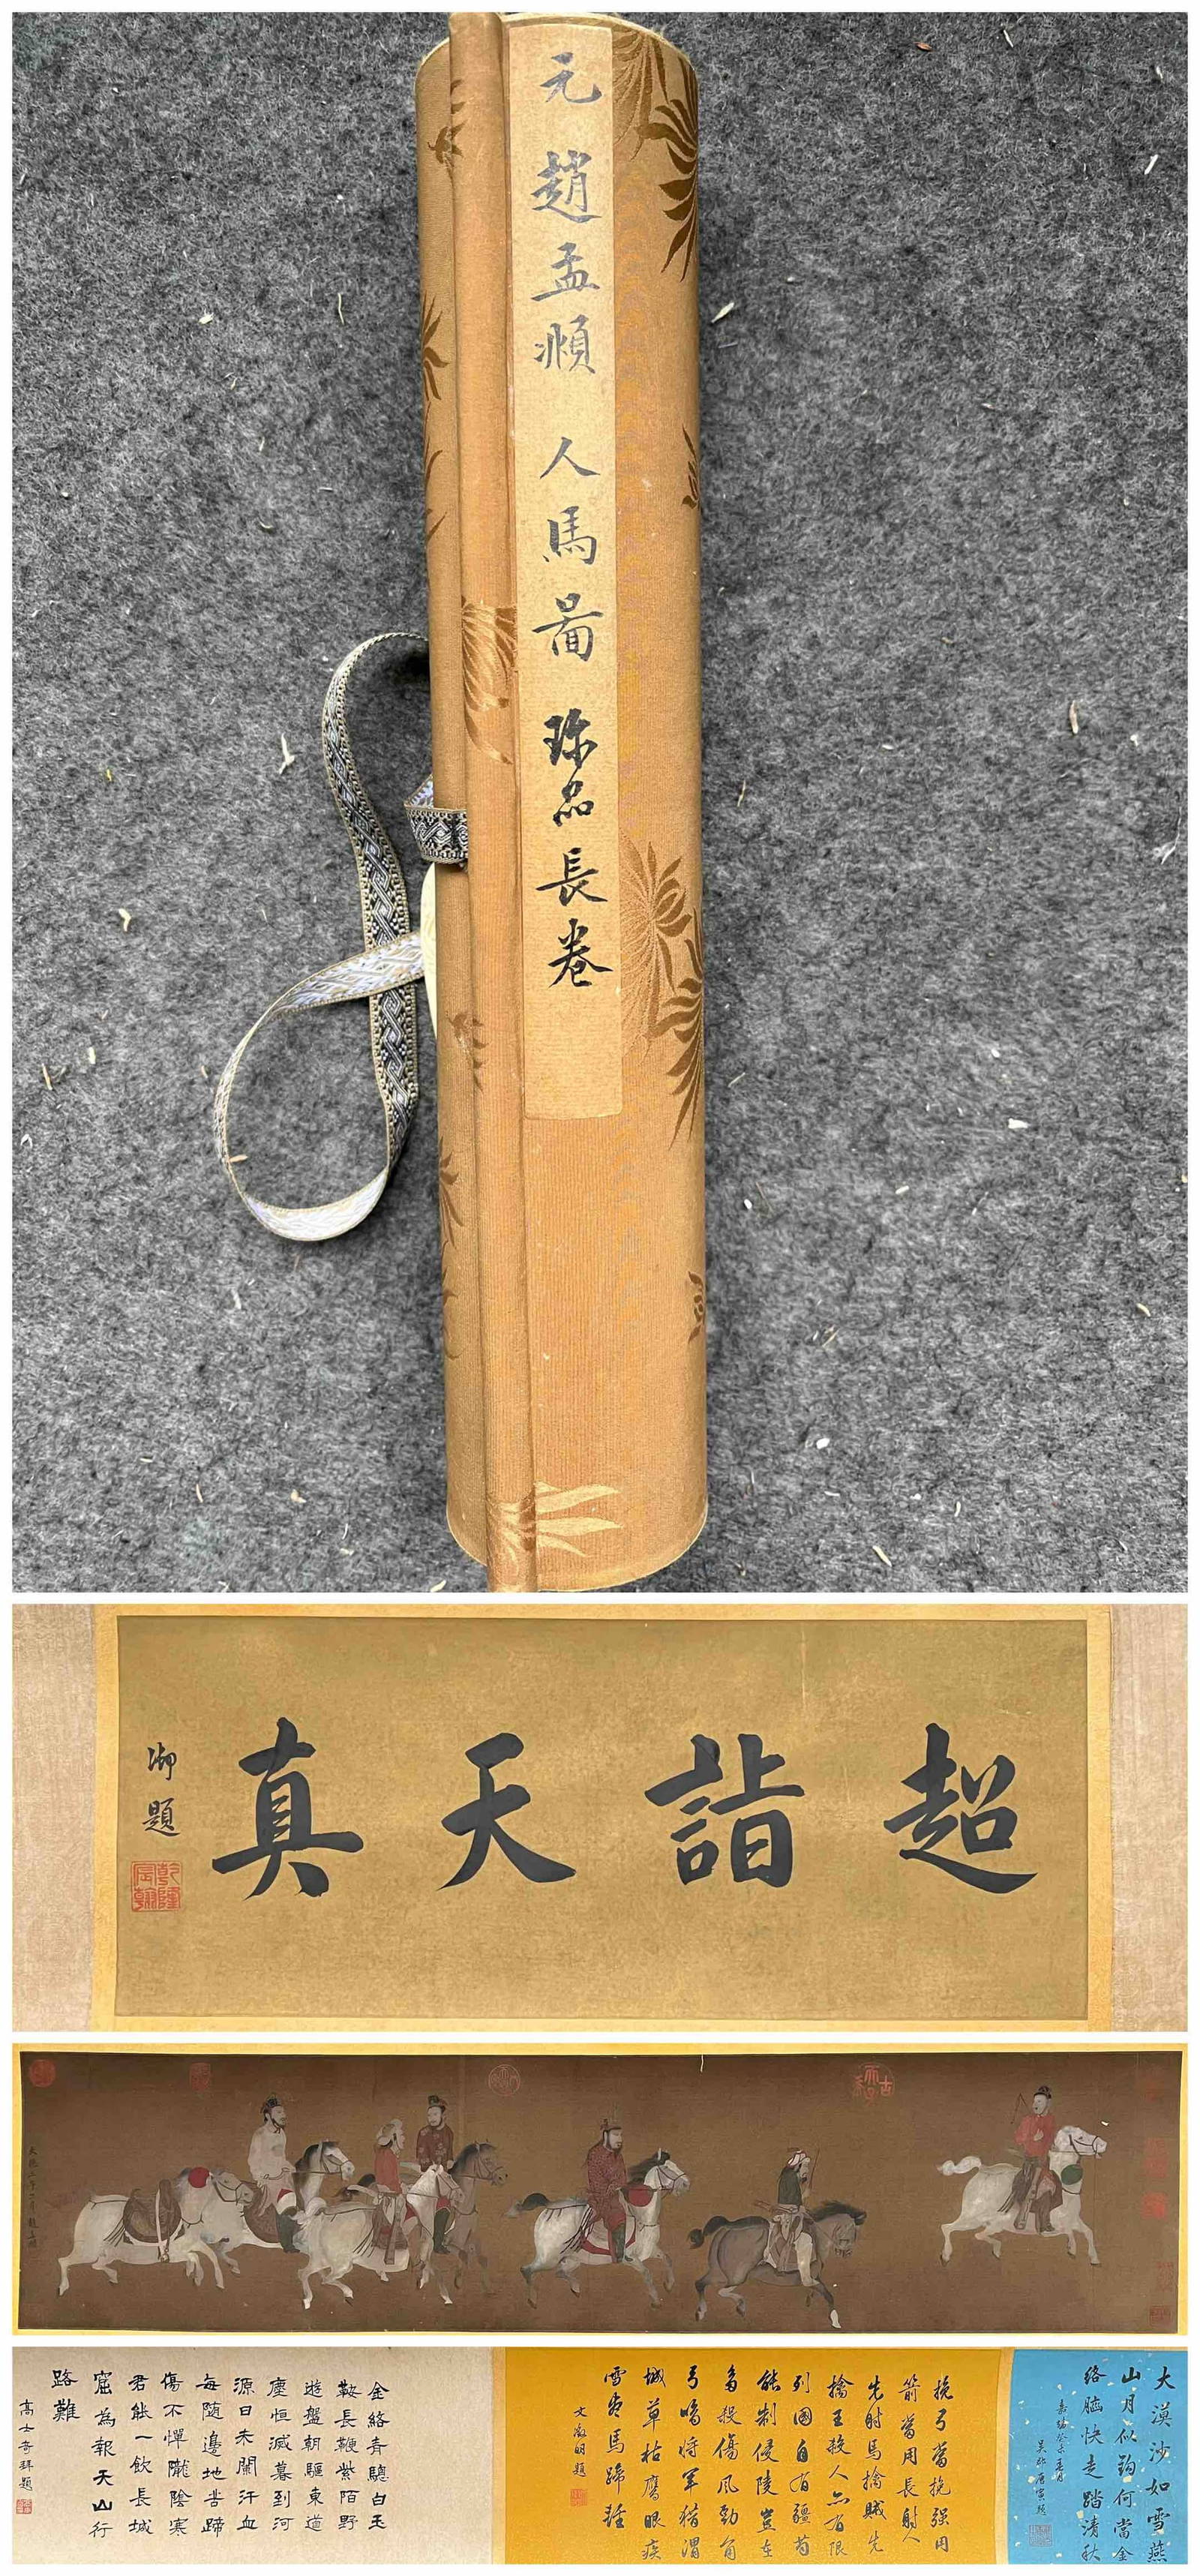 元 趙孟頫 人馬啚 珎品長卷
超詣天真
御題
乾隆宸翰
大漠沙如雪燕
山月似鈎何當金
絡腦快走踏清秋
唐寅題
挽弓當挽强用
箭當用長射人
先射馬擒賊先
擒王殺人亦有限
列國自有疆苟
能制侵陵豈在
多殺傷風勁角
弓鳴將軍獵渭
城草枯鷹眼疾
雪盡馬蹄輕
文徵明題
金絡青驄白玉
鞍長鞭紫陌野
遊盤朝驅東道
塵恒滅暮到河
源日未闌汗血
每隨邊地苦蹄
傷不憚隴陰寒
君能一飲長城
窟為報天山行
路難
高士奇拜題